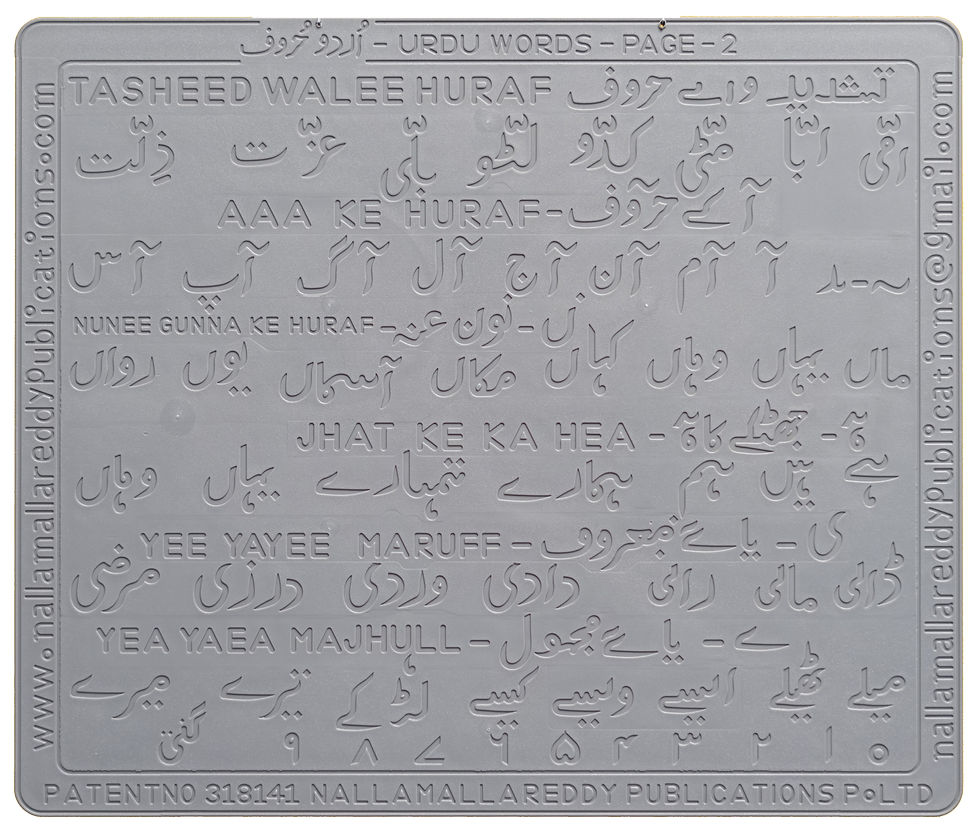 اُردو حُروف – URDU WORDS – PAGE – 2
TASHEED WALEE HURAF تشدید والے حروف
امّی ابّا مٹّی کدّو لٹّو بلّی عزّت ذِلّت
AAA KE HURAF – آ کے حروف
آ آم آن آج آل آگ آپ آس
NUNEE GUNNA KE HURAF – نون غنہ – ں
ماں یہاں وہاں کہاں مکاں آسماں یوں رواں
JHAT KE KA HEA – جھٹکے کا ہ – ہ
ہے ہیں ہم ہمارے تمہارے یہاں وہاں
YEE YAYEE MARUFF – یائے معروف – ی
ڈالی مالی رانی دادی وردی درزی مرضی
YEA YAEA MAJHULL – یائے مجہول – ے
میلے ٹھیلے ایسے ویسے کیسے لڑکے تیرے میرے
۰ ۱ ۲ ۳ ۴ ۵ ۶ ۷ ۸ ۹ گنتی
PATENTNO 318141 NALLAMALLAREDDY PUBLICATIONS P.LTD
www.nallamallareddypublications.com
nallamallareddypublications@gmail.com